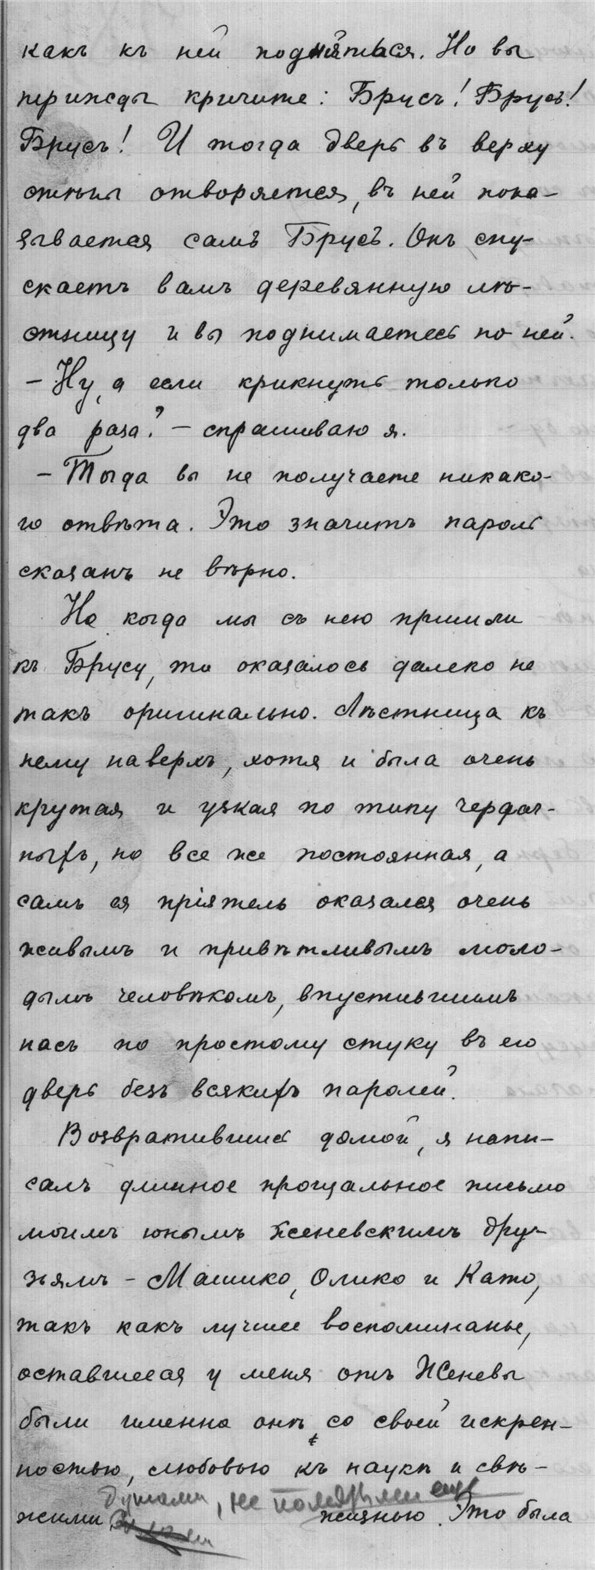 какъ къ ней подняться. Но вы
трижды кричите: Брусъ! Брусъ!
Брусъ! И тогда дверь въ верху
стѣны отворяется, въ ней пока-
зывается самъ Брусъ. Онъ спу-
скаетъ вамъ деревянную лѣ-
стницу и вы поднимаетесь по ней.
– Ну, а если крикнуть только
два раза? – спрашиваю я.
– Тогда вы не получаете никако-
го отвѣта. Это значитъ пароль
сказанъ не вѣрно.
Но когда мы съ нею пришли
къ Брусу, то оказалось далеко не
такъ оригинально. Лѣстница къ
нему наверхъ, хотя и была очень
крутая и узкая по типу чердач-
ныхъ, но все же постоянная, а
самъ ея пріятель оказался очень
живымъ и привѣтливымъ моло-
дымъ человѣкомъ, впустившимъ
насъ по простому стуку въ его
дверь безъ всякихъ паролей.
Возвратившись домой, я напи-
салъ длинное прощальное письмо
моимъ юнымъ женевскимъ дру-
зьямъ – Машико, Олико и Като,
такъ какъ лучшее воспоминанье,
оставшееся у меня отъ Женевы
были именно онѣ со своей искрен-
ностью, любовью къ наукѣ и свѣ-
душами, не помятыми еще
жими жизнью. Это была